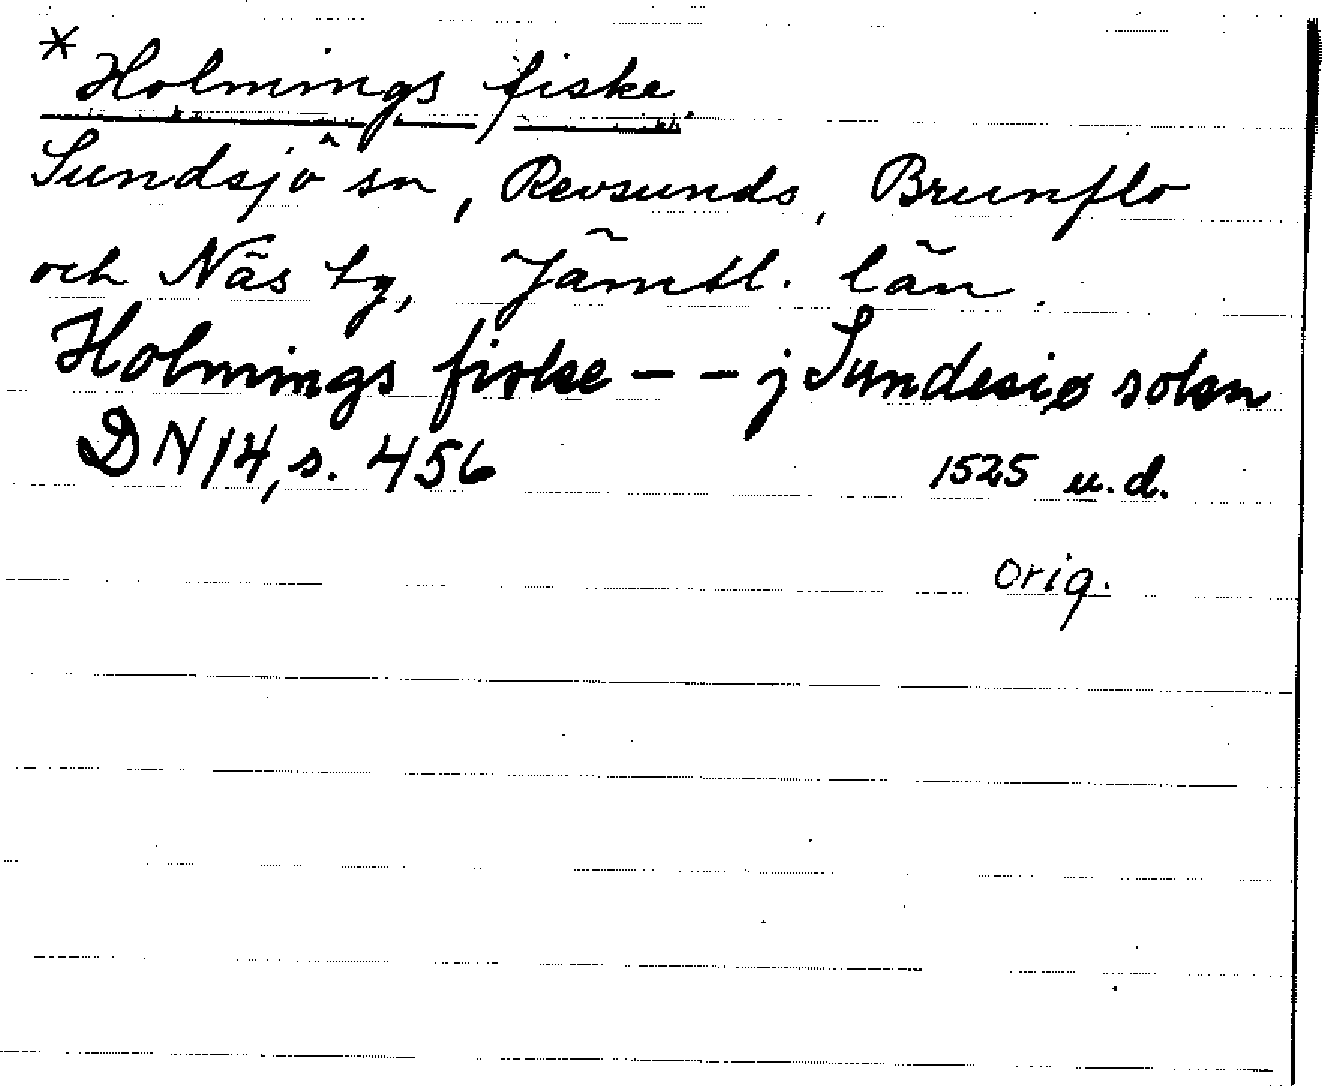 * Holmings fiske.
Sundsjö sn, Revsunds, Brunflo
och Näs tg, Jämtl. län.
Holmings fiske – – j Sundesiø sokn
DN 14, s. 456 1525 u.d.
orig.